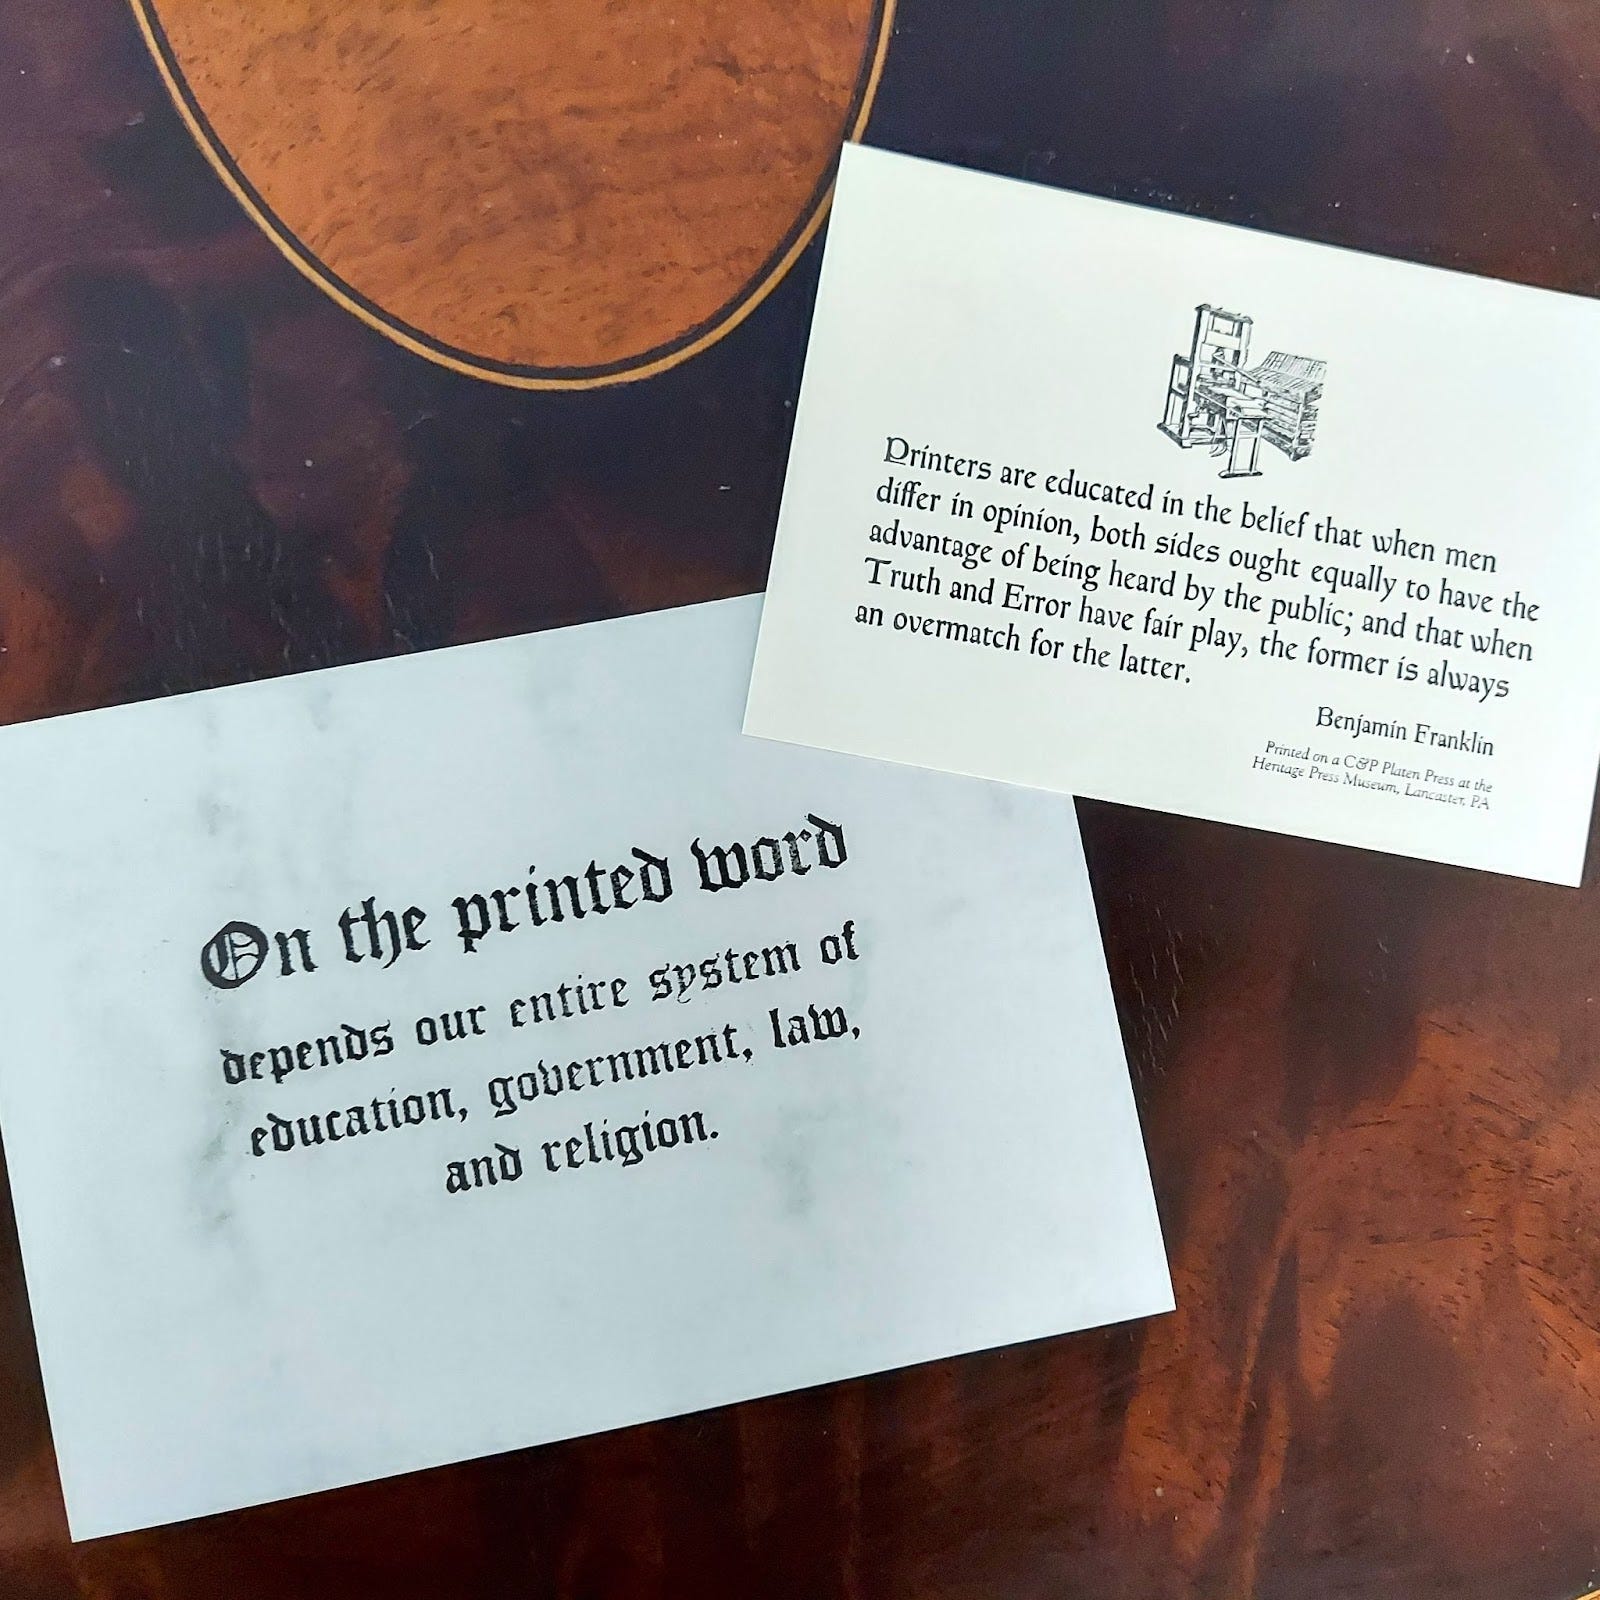 Printers are educated in the belief that when men
differ in opinion, both sides ought equally to have the
advantage of being heard by the public; and that when
Truth and Error have fair play, the former is always
an overmatch for the latter.
Benjamin Franklin
Printed on a C&P Platen Press at the
Heritage Press Museum, Lancaster, PA
On the printed word
depends our entire system of
education, government, law,
and religion.